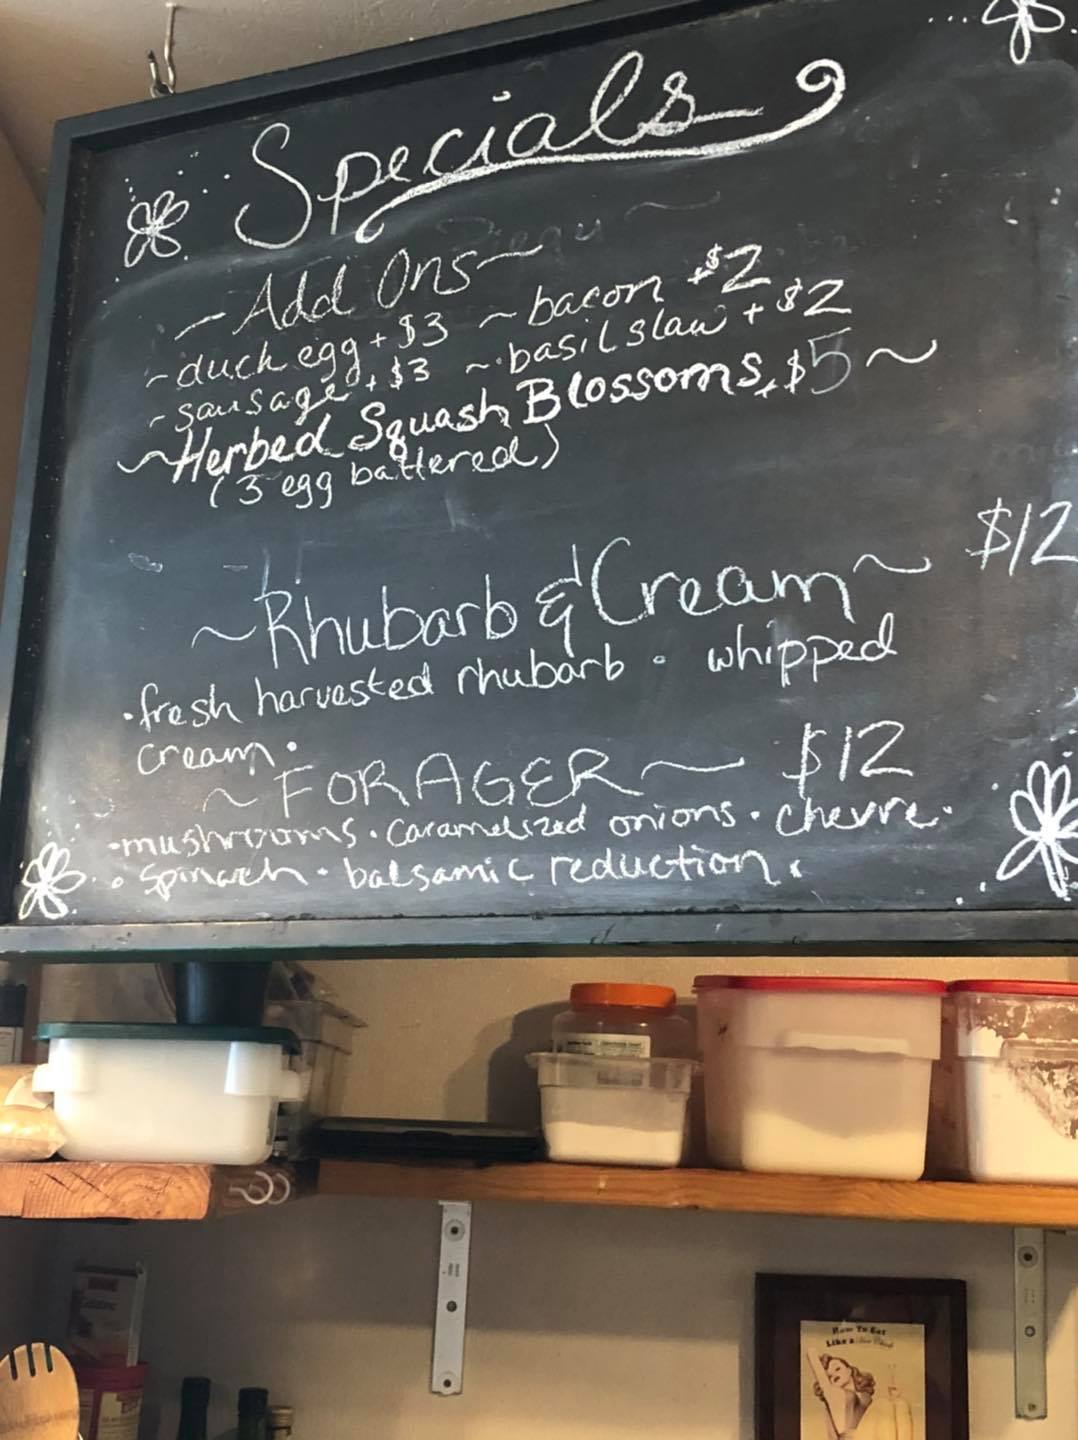 Specials
~ Add Ons ~
~ duck egg + $3 ~ bacon + $2
~ sausage + $3 ~ basil slaw + $2
~ Herbed Squash Blossoms + $5 ~
(3 egg battered)
~ Rhubarb & Cream ~ $12
• fresh harvested rhubarb • whipped
cream •
~ FORAGER ~ $12
• mushrooms • caramelized onions • chevre •
• spinach • balsamic reduction •
Gelatine
How To Eat
Like a